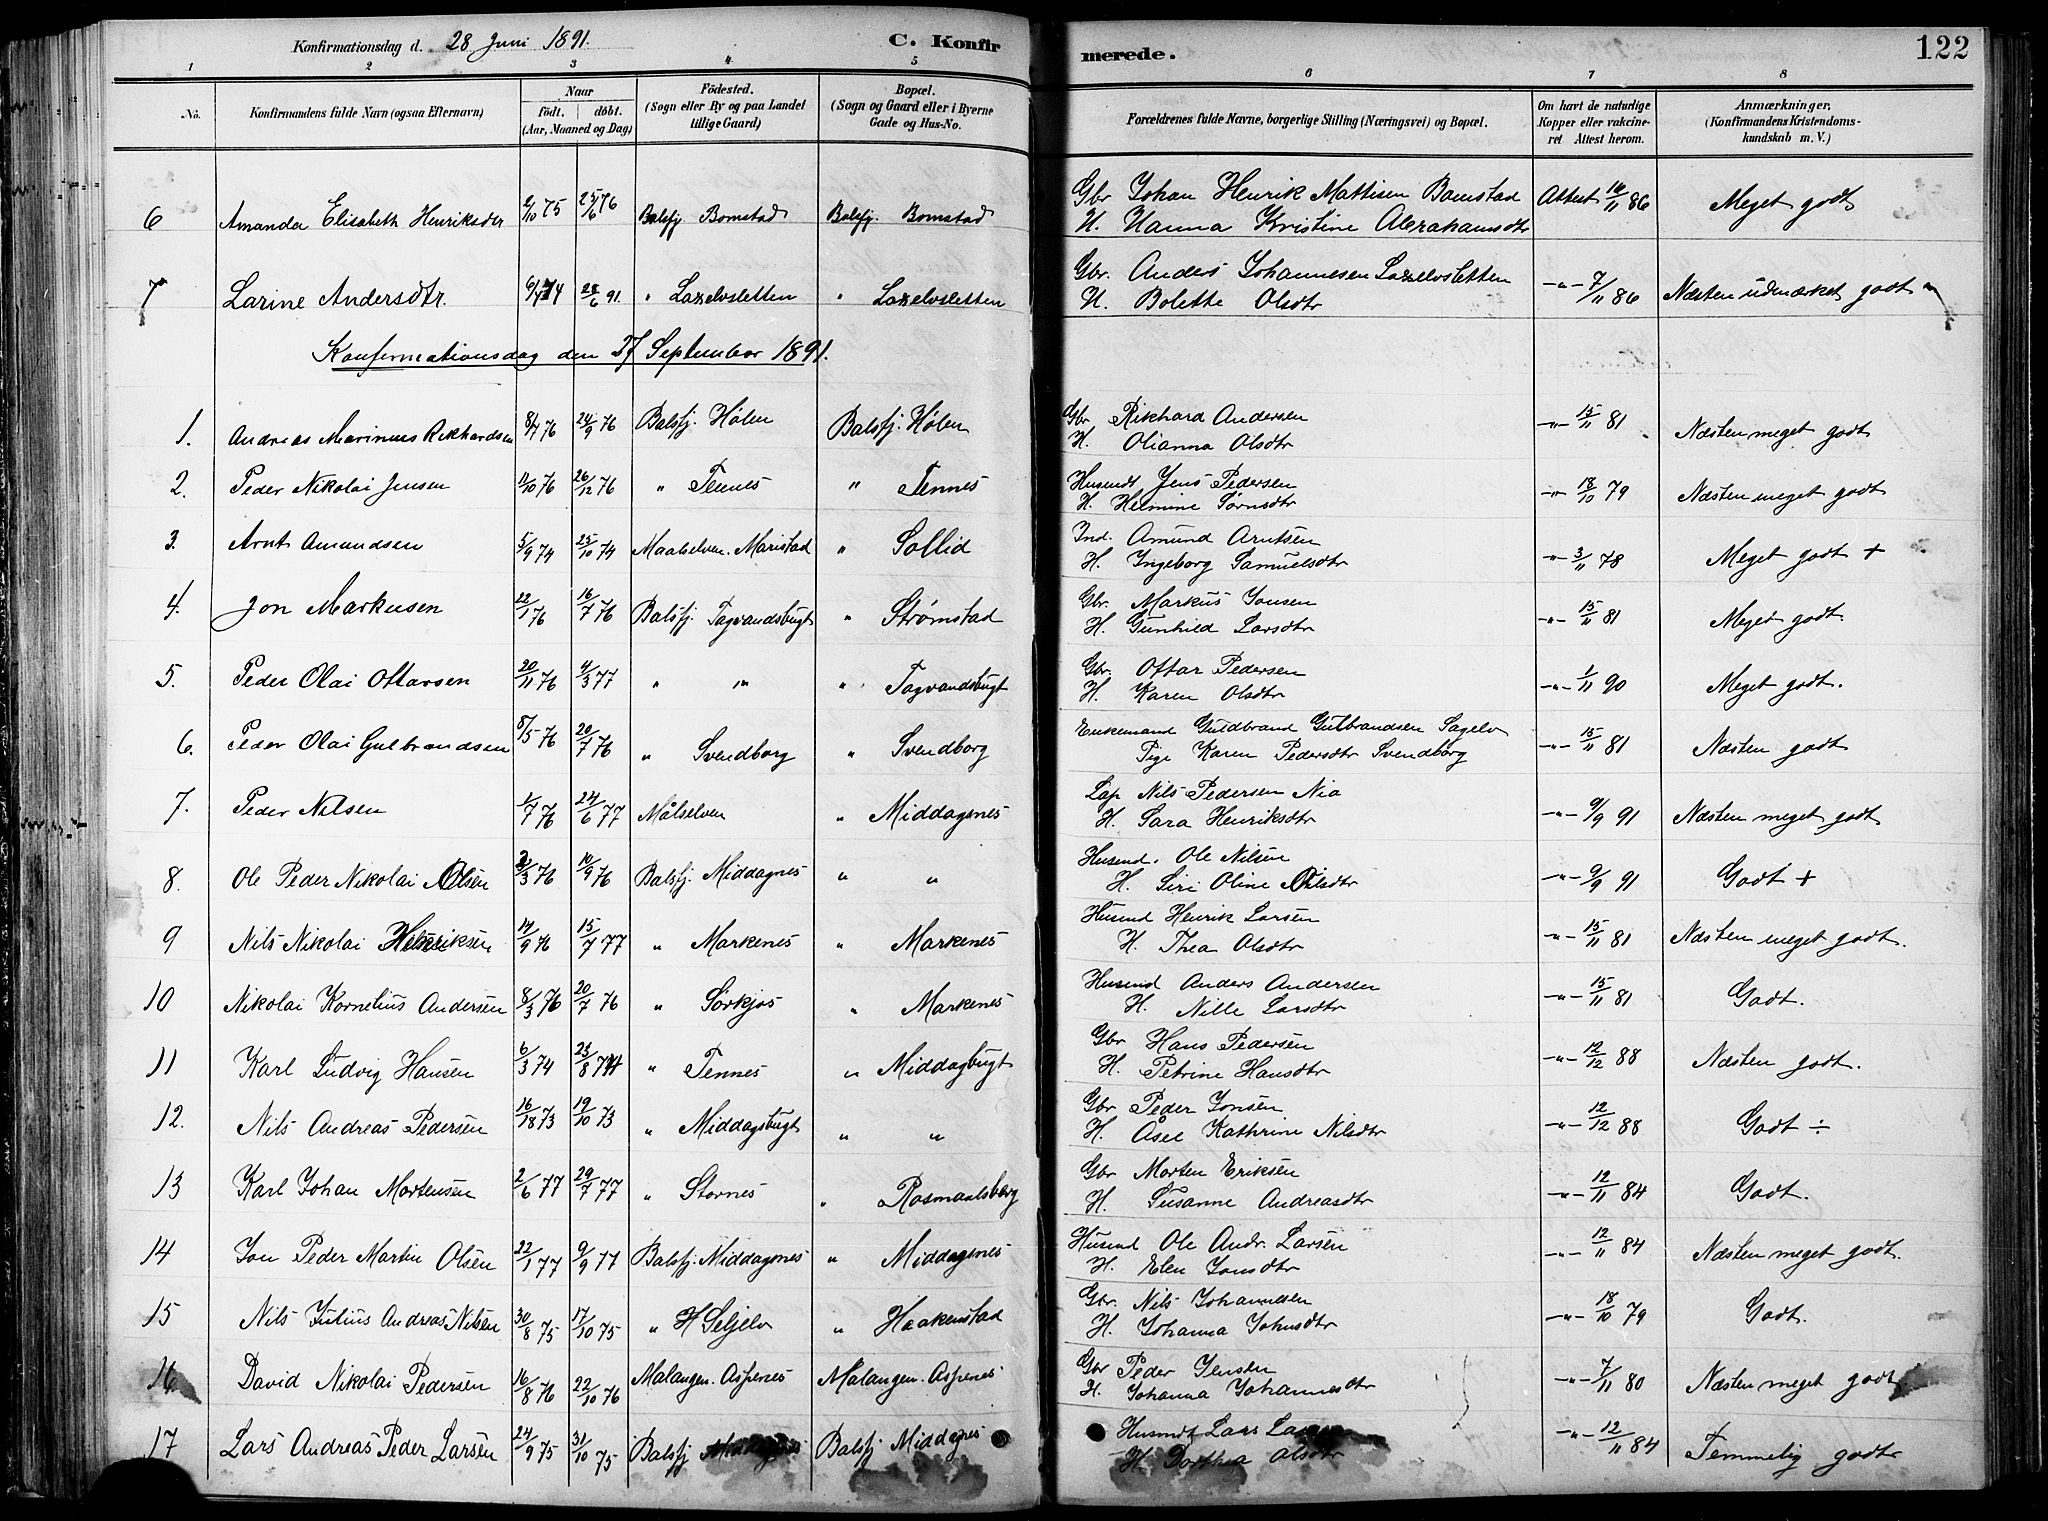 Konfirmationsdag d. 28 Juni 1891. C. Konfirmerede. 122
1 2 3 4 5 6 7 8
No. Konfirmandens fulde Navn (ogsaa Efternavn) Naar födt. döbt. (Aar, Maaned og Dag) Födested. (Sogn eller By og paa Landet tillige Gaard) Bopæl. (Sogn og Gaard eller i Byerne Gade og Hus-No. Forældrenes fulde Navne, borgerlige Stilling (Næringsvei) og Bopæl. Om havt de naturlige Kopper eller vakcineret Attest herom. Anmærkninger. (Konfirmandens Kristendomskundskab m. V.)
6 Amanda Elisabeth Henriksdtr 2/10 75 25/6 76 Balsfj Bomstad Balsfj. Bomstad Gbr Johan Henrik Mattisen Bomstad Attest 16/11 86 Meget godt
H. Hanna Kristine Abrahamsdtr
7 Larine Andersdtr. 6/4 74 28/6 91. " Laxelvsletten " Laxelvsletten Gbr. Anders Johannesen Laxelvsletten -"- 7/11 86 Næsten udmærket godt
H. Bolette Olsdtr
Konfirmationsdag den 27 September 1891.
1. Andreas Marinus Rikhardsen 8/7 76 24/9 76 Balsfj. Hølen Balsfj. Hølen Gbr Rikhard Andersen -"- 15/11 81 Næsten meget godt
H. Olianna Olsdtr
2. Peder Nikolai Jensen 11/10 76 26/12 76 " Tennes " Tennes Husmdt Jens Pedersen -"- 18/10 79 Næsten meget godt
H. Helmine Sørnsdtr
3. Arnt Amundsen 5/9 74 25/10 74 Maalselven. Maristad " Sollid Ind. Amund Arntsen -"- 3/11 78 Meget godt +
H. Ingeborg Samuelsdtr
4. Jon Markusen 22/1 76 16/7 76 Balsfj. Tagvandsbugt " Strømstad Gbr. Markus Jonsen -"- 15/11 81 Meget godt.
H. Gunhild Larsdtr
5. Peder Olai Ottarsen 20/11 76 4/3 77 " " " Tagvandsbugt Gbr. Ottar Pedersen -"- 1/11 90 Meget godt.
H. Karen Olsdtr
6. Peder Olai Gulbrandsen 8/5 76 20/7 76 " Svendborg " Svendborg Enkemand Guldbrand Gulbrandsen Sagelv -"- 15/11 81 Næsten godt
Pige Karen Pedersdtr Svendborg
7. Peder Nilsen 1/7 76 24/6 77 Målselven " Middagsnes Lap Nils Pedersen Nia -"- 9/9 91 Næsten meget godt
H. Sara Henriksdtr
8. Ole Peder Nikolai Olsen 2/3 76 10/9 76 Balsfj. Middagnes " " Husmd. Ole Nilsen -"- 9/9 91 Godt +
H. Siri Oline Olsdtr
9 Nils Nikolai Henriksen 14/9 76 15/7 77 " Markenes " Markenes Husmd Henrik Larsen -"- 15/11 81 Næsten meget godt.
H. Thea Olsdtr
10 Nikolai Kornelius Andersen 8/3 76 20/7 76 " Sørkjos " Markenes Husmd Anders Andersen -"- 15/11 81 Godt.
H. Nille Larsdtr
11 Karl Ludvig Hansen 6/3 74 23/8 74 " Tennes " Middagbugt Gbr Hans Pedersen -"- 12/12 88 Næsten godt.
H. Petrine Hansdtr
12. Nils Andreas Pedersen 16/18 73 19/10 73 " Middagsbugt " " Gbr Peder Jonsen -"- 12/12 88 Godt ÷
H. Åsel Kathrine Nilsdtr
13 Karl Johan Mortensen 2/6 77 29/7 77 " Stornes " Rosmaalsberg Gbr Morten Eriksen -"- 12/11 84 Godt.
H. Susanne Andreasdtr
14 Jon Peder Martin Olsen 22/1 77 9/9 77 Balsfj. Middagnes " Middagsnes Husmd Ole Andr. Larsen -"- 12/11 84 Næsten meget godt.
H. Elen Jonsdtr
15 Nils Julius Andreas Nilsen 30/8 75 17/10 75 " H Seljelv " Haakenstad Gbr. Nils Johannesen -"- 18/10 79 Godt.
H. Johanna Johnsdtr
16 David Nikolai Pedersen 16/8 76 22/10 76 Malangen. Aspenes Malangen. Aspenes Gbr Peder Jensen -"- 7/11 80 Næsten meget godt
H. Johanna Johannesdtr
17 Lars Andreas Peder Larsen 24/9 75 31/10 75 Balsfj Middagsnes Balsfj Middagnes Husmdt Lars Larsen -"- 12/11 84 Temmelig godt
H. Dorthea Olsdtr